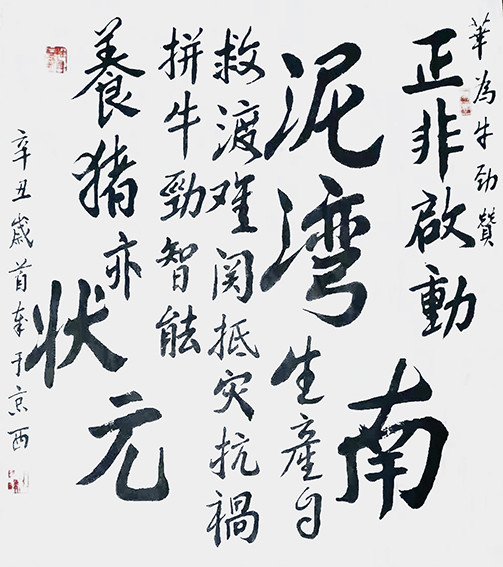 華為牛勁贊
正非啟動南
泥湾生産自
救渡难関抵灾抗禍
拼牛勁智能
養猪亦
状元
辛丑歲首奉于京西